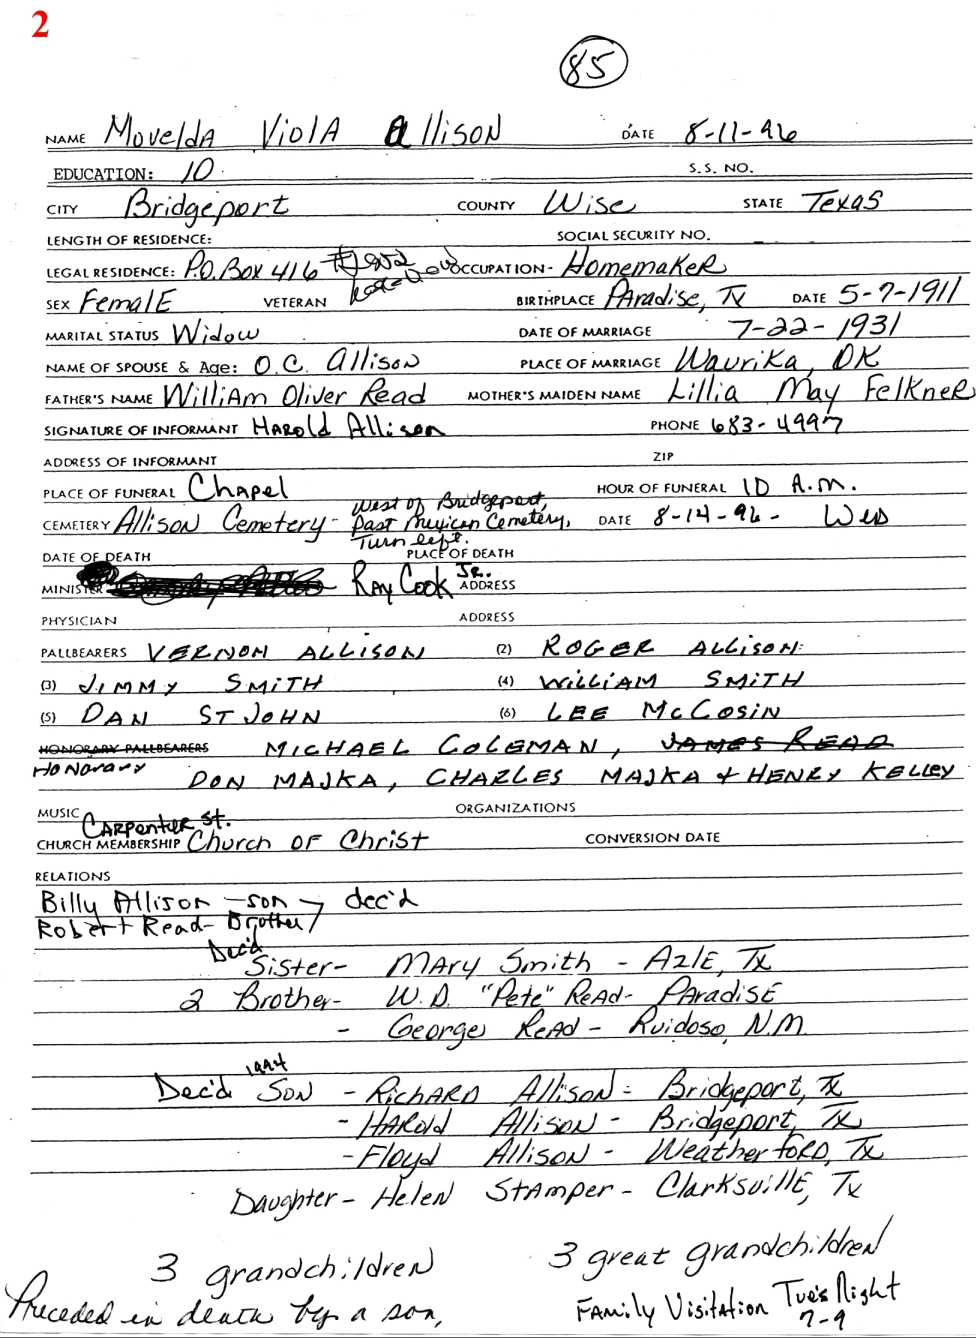 2
85
NAME Movelda Viola Allison DATE 8-11-96
EDUCATION: 10 S.S. NO.
CITY Bridgeport COUNTY Wise STATE Texas
LENGTH OF RESIDENCE: SOCIAL SECURITY NO.
LEGAL RESIDENCE: P.O. Box 416 OCCUPATION- Homemaker
SEX Female VETERAN BIRTHPLACE Paradise, Tx DATE 5-7-1911
MARITAL STATUS Widow DATE OF MARRIAGE 7-22-1931
NAME OF SPOUSE & Age: O.C. Allison PLACE OF MARRIAGE Waurika, OK
FATHER'S NAME William Oliver Read MOTHER'S MAIDEN NAME Lillia May Felkner
SIGNATURE OF INFORMANT Harold Allison PHONE 683-4997
ADDRESS OF INFORMANT ZIP
PLACE OF FUNERAL Chapel HOUR OF FUNERAL 10 A.M.
CEMETERY Allison Cemetery- West of Bridgeport, Past Mexican Cemetery, Turn left. DATE 8-14-96- Wed
DATE OF DEATH PLACE OF DEATH
MINISTER Ray Cook Jr. ADDRESS
PHYSICIAN ADDRESS
PALLBEARERS VERNON ALLISON (2) ROGER ALLISON
(3) JIMMY SMITH (4) WILLIAM SMITH
(5) DAN ST JOHN (6) LEE McCOSIN
HONORARY PALLBEARERS MICHAEL COLEMAN, JAMES READ
Honorary DON MAJKA, CHARLES MAJKA & HENRY KELLEY
MUSIC ORGANIZATIONS
Carpenter St.
CHURCH MEMBERSHIP Church of Christ CONVERSION DATE
RELATIONS
Billy Allison -son- dec'd
Robert Read- Brother
Dec'd
Sister- Mary Smith - Azle, Tx
2 Brother- W.D. "Pete" Read- Paradise
- George Read - Ruidoso, N.M.
1994
Dec'd Son - Richard Allison- Bridgeport, Tx
- Harold Allison - Bridgeport, Tx
- Floyd Allison - Weatherford, Tx
Daughter- Helen Stamper- Clarksville, Tx
3 grandchildren 3 great grandchildren
Preceded in death by a son, Family Visitation Tue's Night
7-9